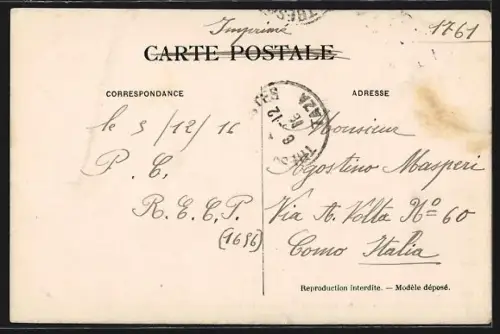 Imprimé
1761
CARTE POSTALE
CORRESPONDANCE
ADRESSE
le 5/12/16
P. C.
R. E. C. P.
(1696)
TAZA
12
Monsieur
Agostino Masperi
Via A. Volta Nº 60
Como Italia
Reproduction interdite. — Modèle déposé.